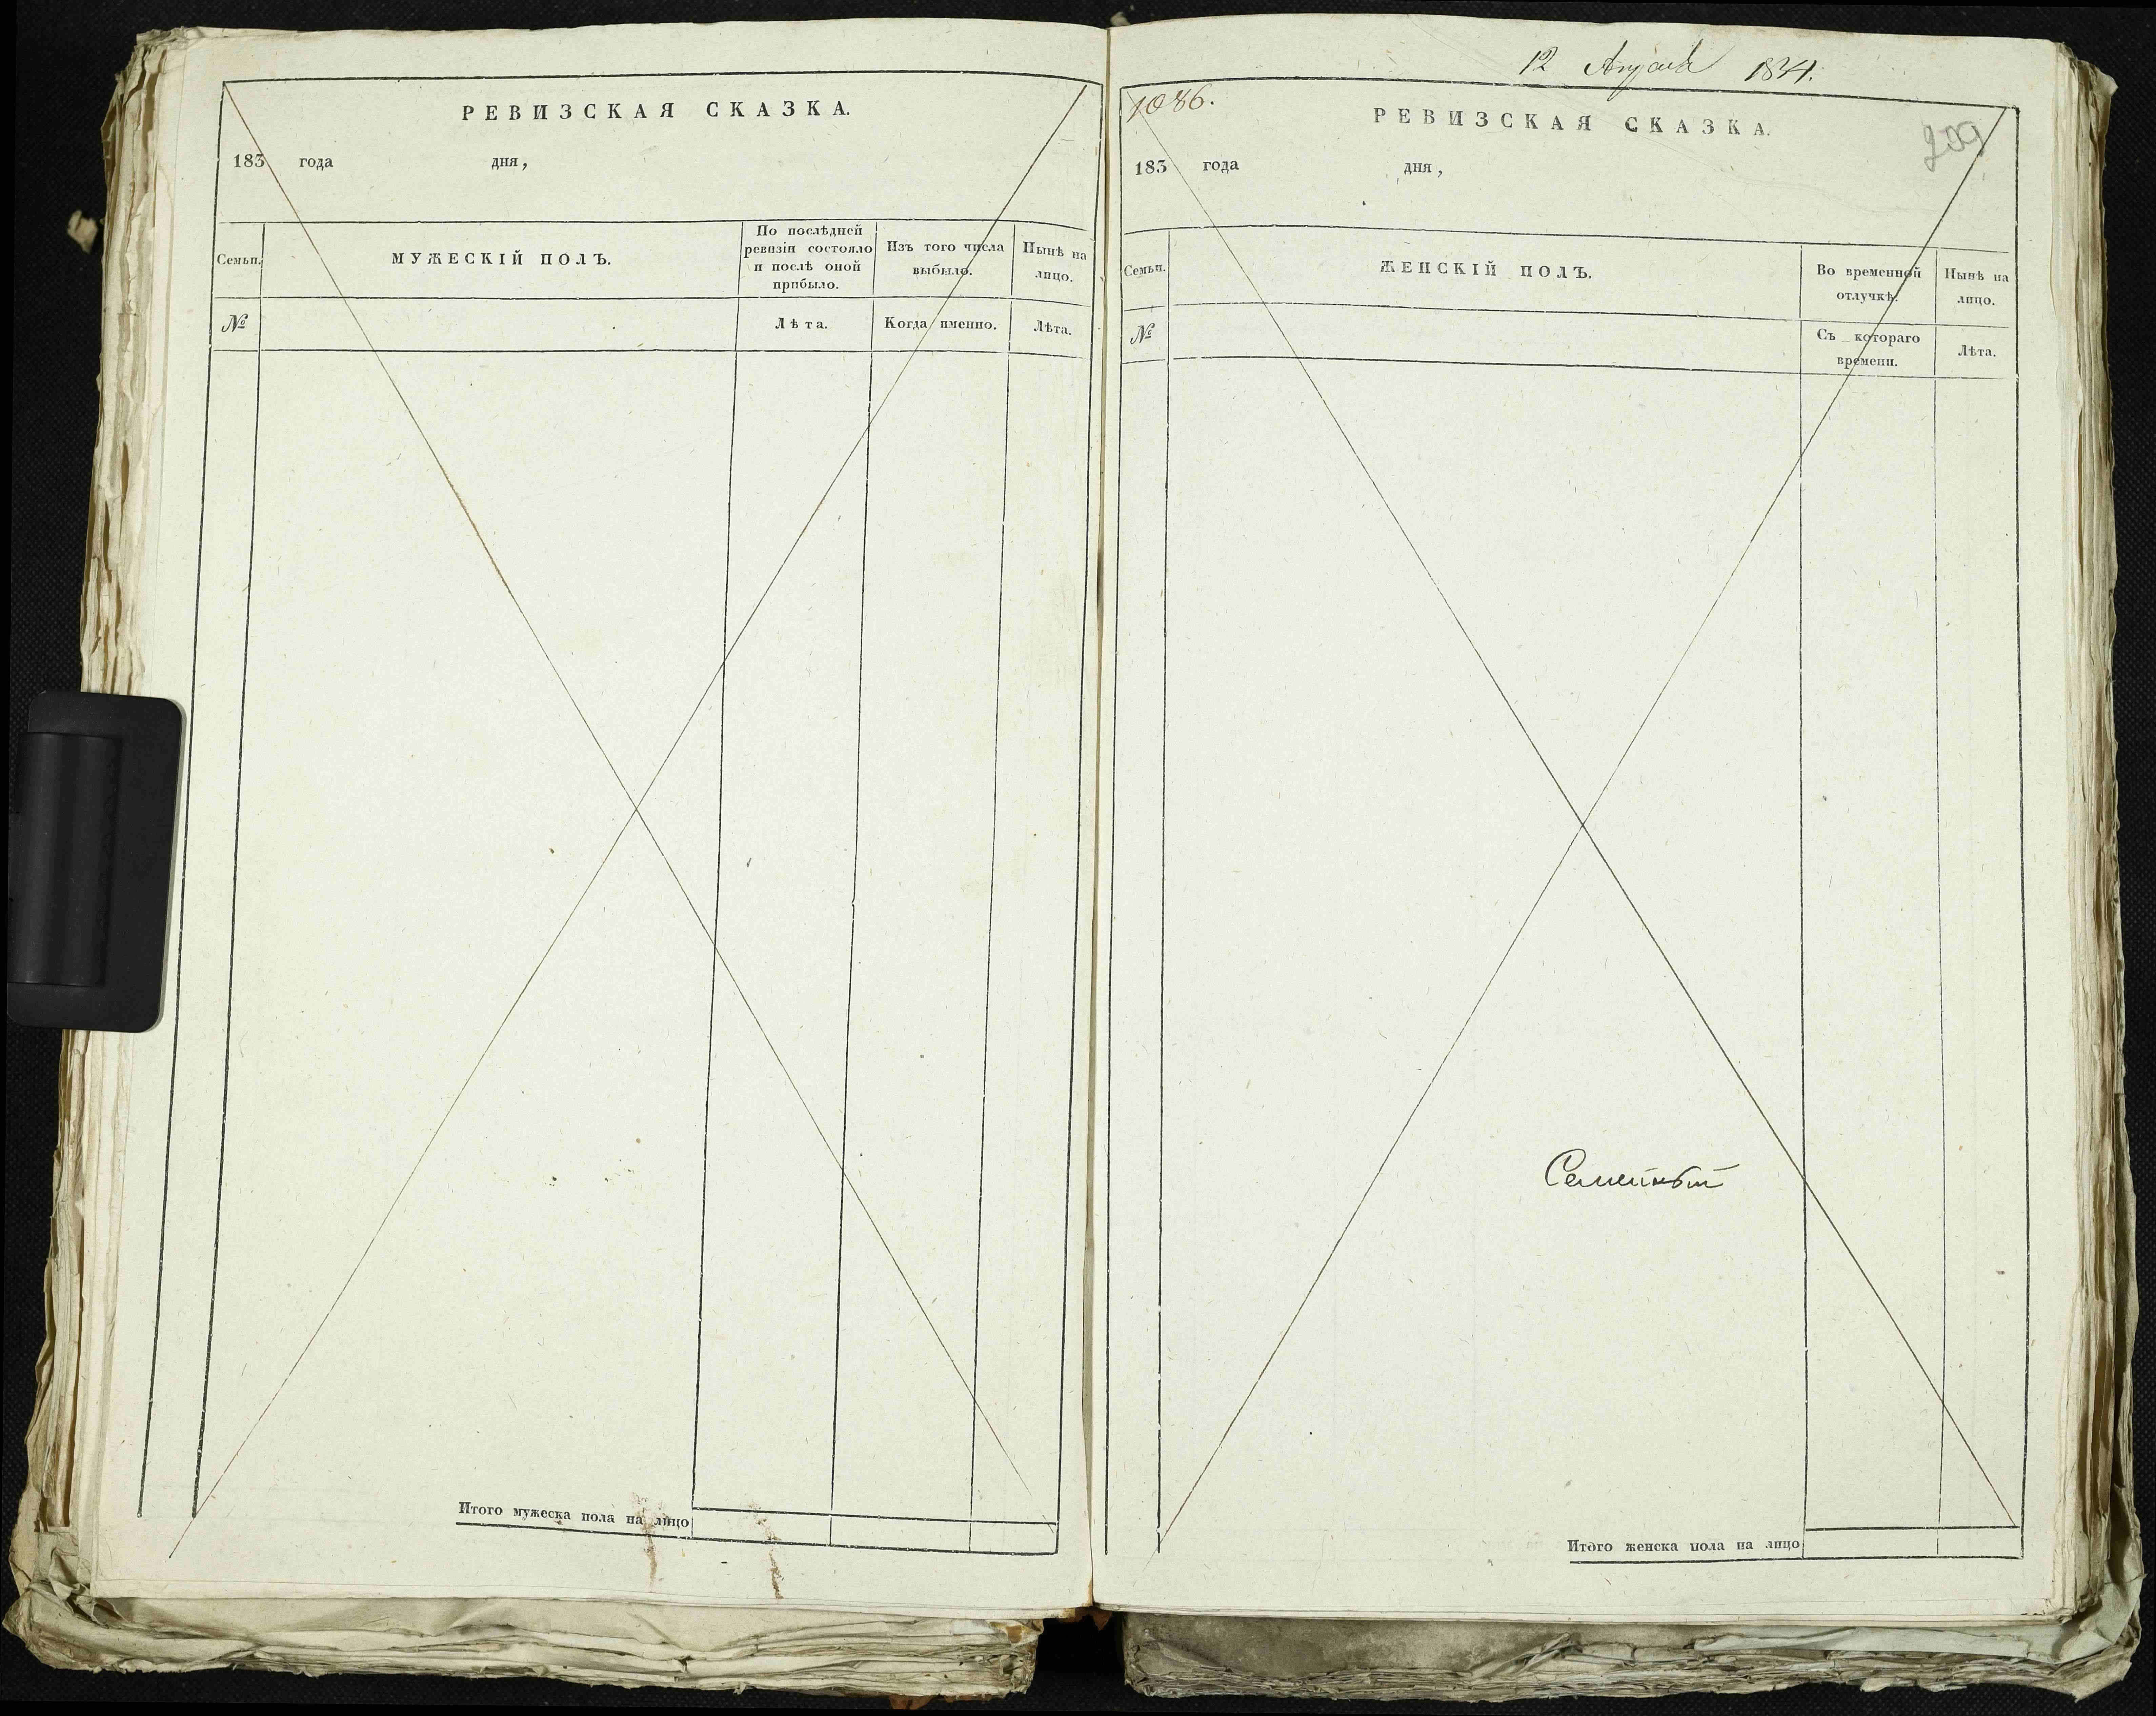 РЕВИЗСКАЯ СКАЗКА.
183 года дня,
Семьи.
МУЖЕСКІЙ ПОЛЪ.
По послѣдней
ревизіи состояло
и послѣ оной
прибыло.
Изъ того числа
выбыло.
Нынѣ на
лицо.
№
Лѣта.
Когда именно.
Лѣта.
Итого мужеска пола на лицо
12 Апреля 1834.
1086.
РЕВИЗСКАЯ СКАЗКА.
209
183 года дня,
Семьи.
ЖЕНСКІЙ ПОЛЪ.
Во временной
отлучкѣ.
Нынѣ на
лицо.
№
Съ котораго
времени.
Лѣта.
Семейный
Итого женска пола на лицо